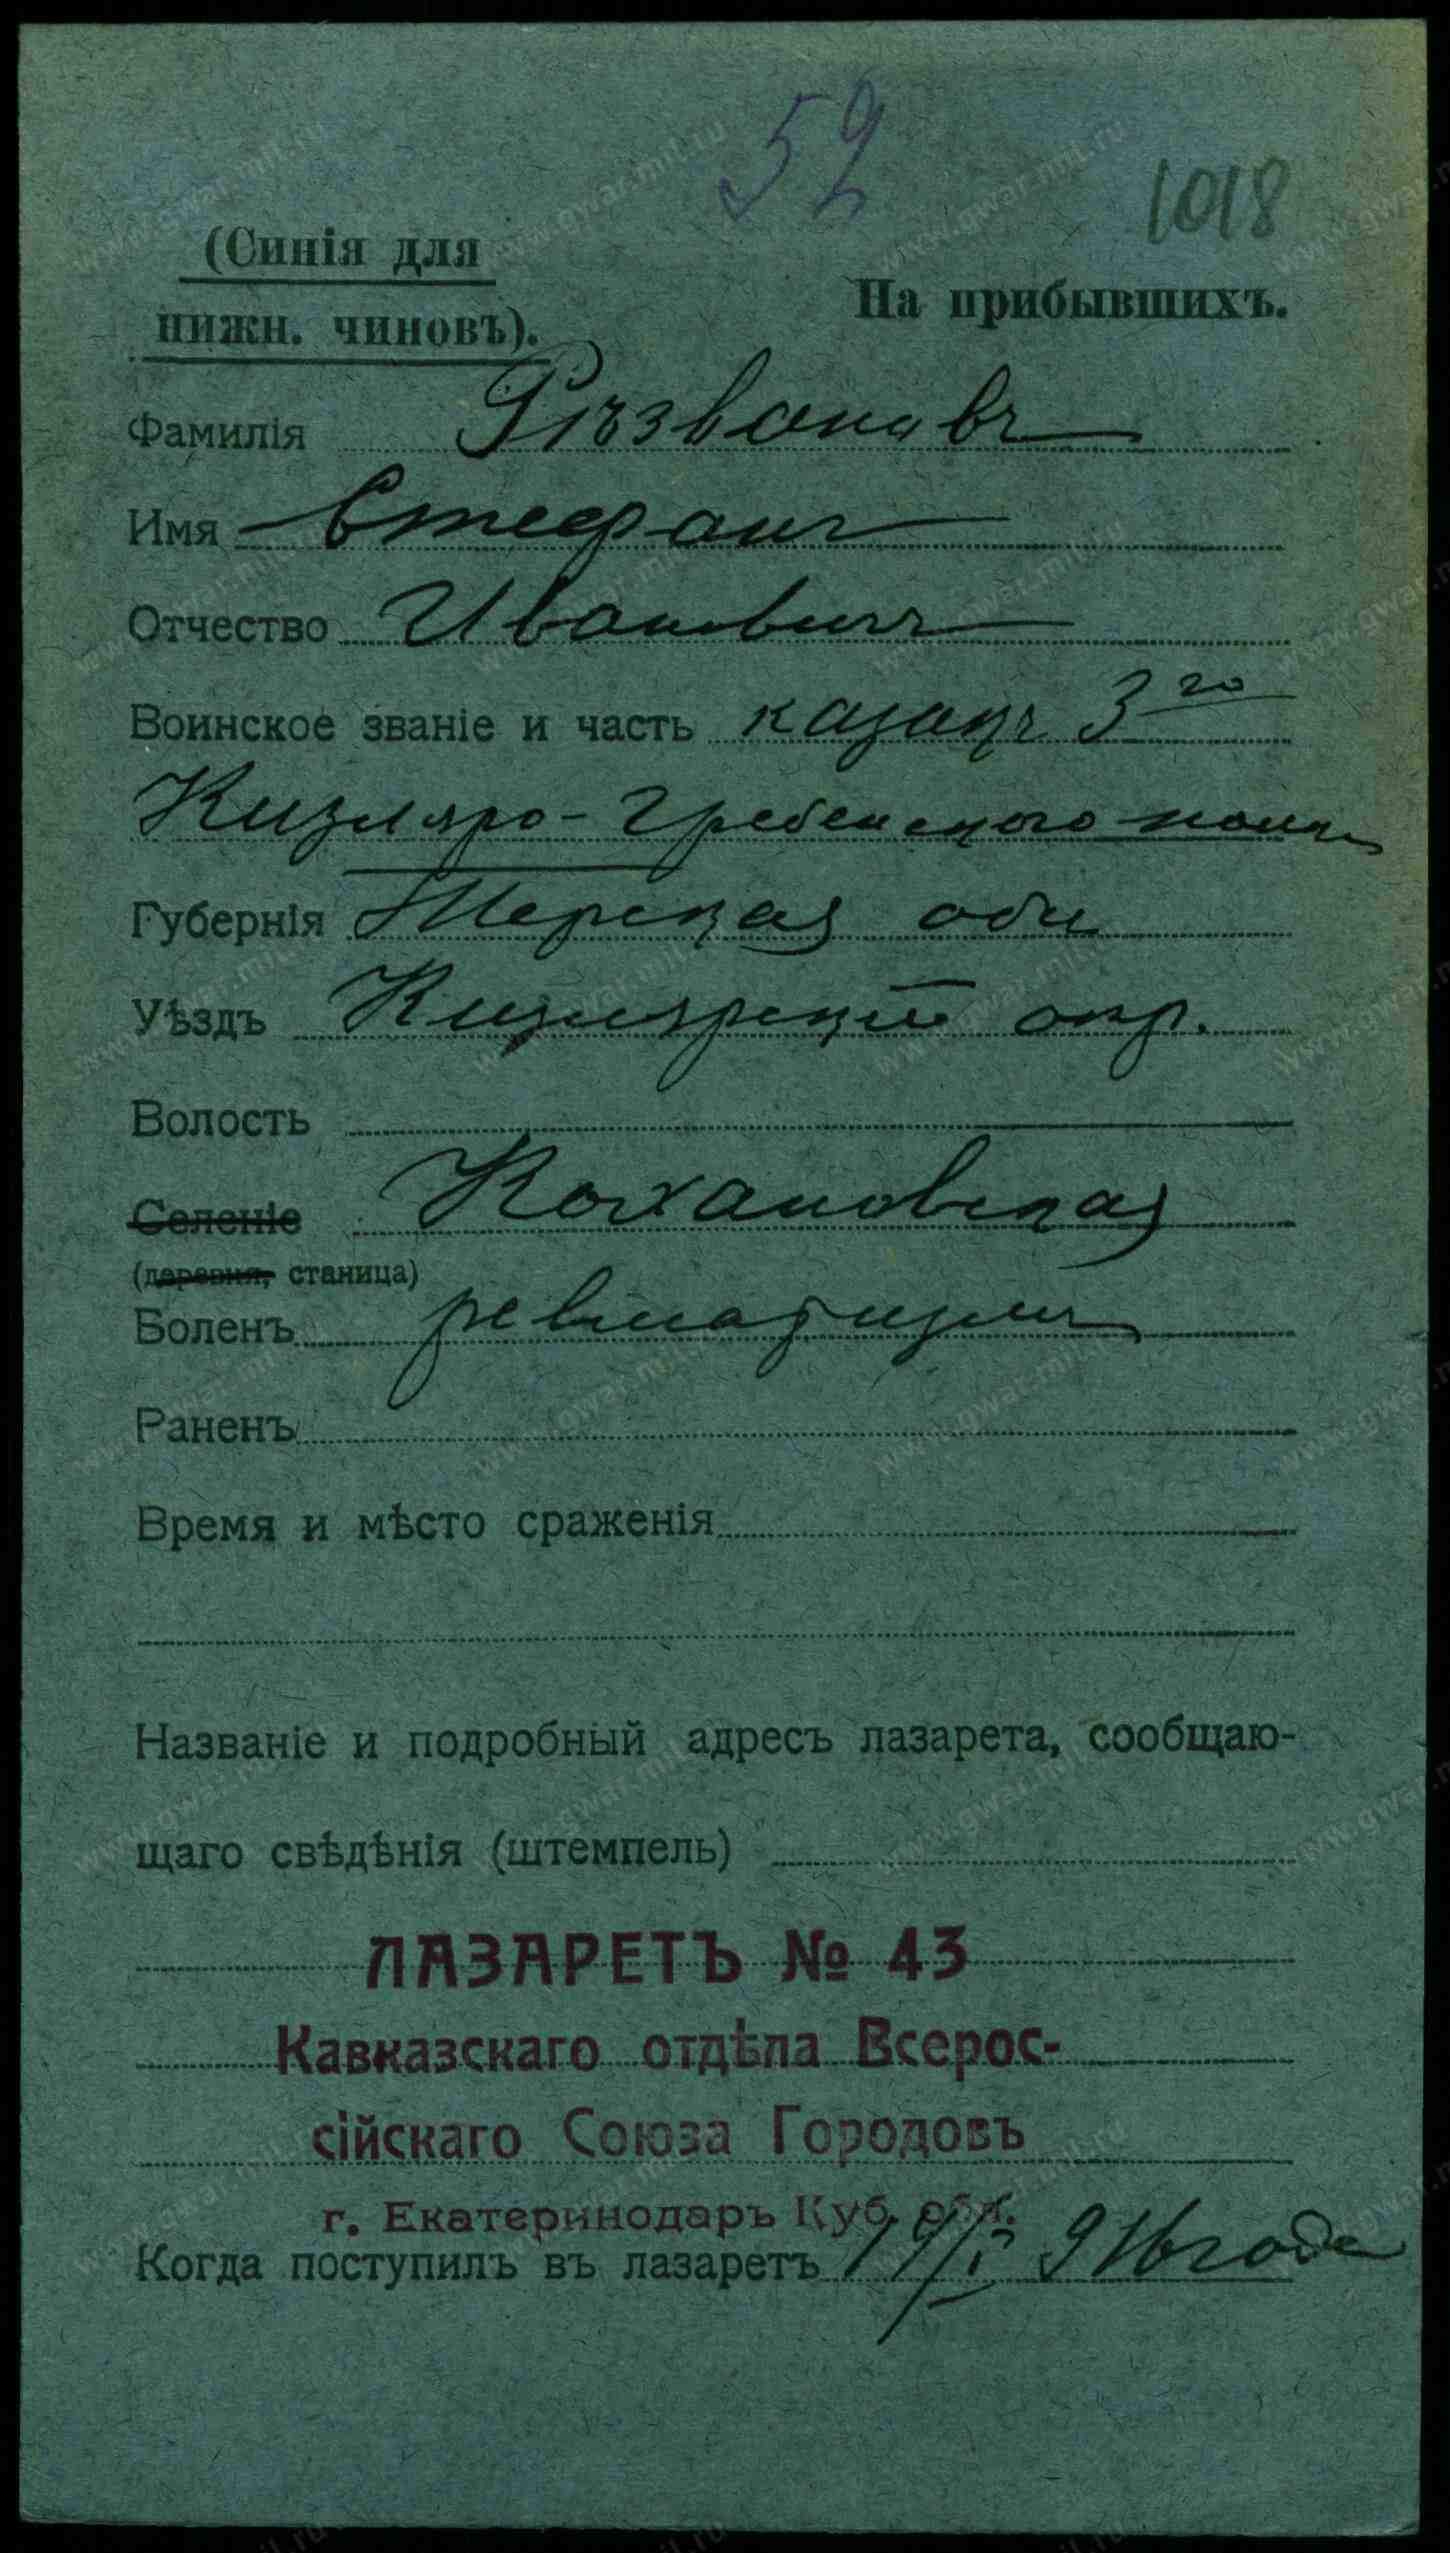 52
1018
(Синія для
нижн. чиновъ).
На прибывшихъ.
Фамилія Рѣзвоновъ
Имя Стефанъ
Отчество Ивановичъ
Воинское званіе и часть казакъ 3го
Кизляро-Гребенского полка
Губернія Терская обл
Уѣздъ Кизлярскій окр.
Волость
Селеніе Кохановская
(деревня, станица)
Боленъ ревматизмъ
Раненъ
Время и мѣсто сраженія
Названіе и подробный адресъ лазарета, сообщаю-
щаго свѣдѣнія (штемпель)
ЛАЗАРЕТЪ № 43
Кавказскаго отдѣла Всерос-
сійскаго Союза Городовъ
г. Екатеринодаръ Куб. обл.
Когда поступилъ въ лазаретъ 19/I 916 года